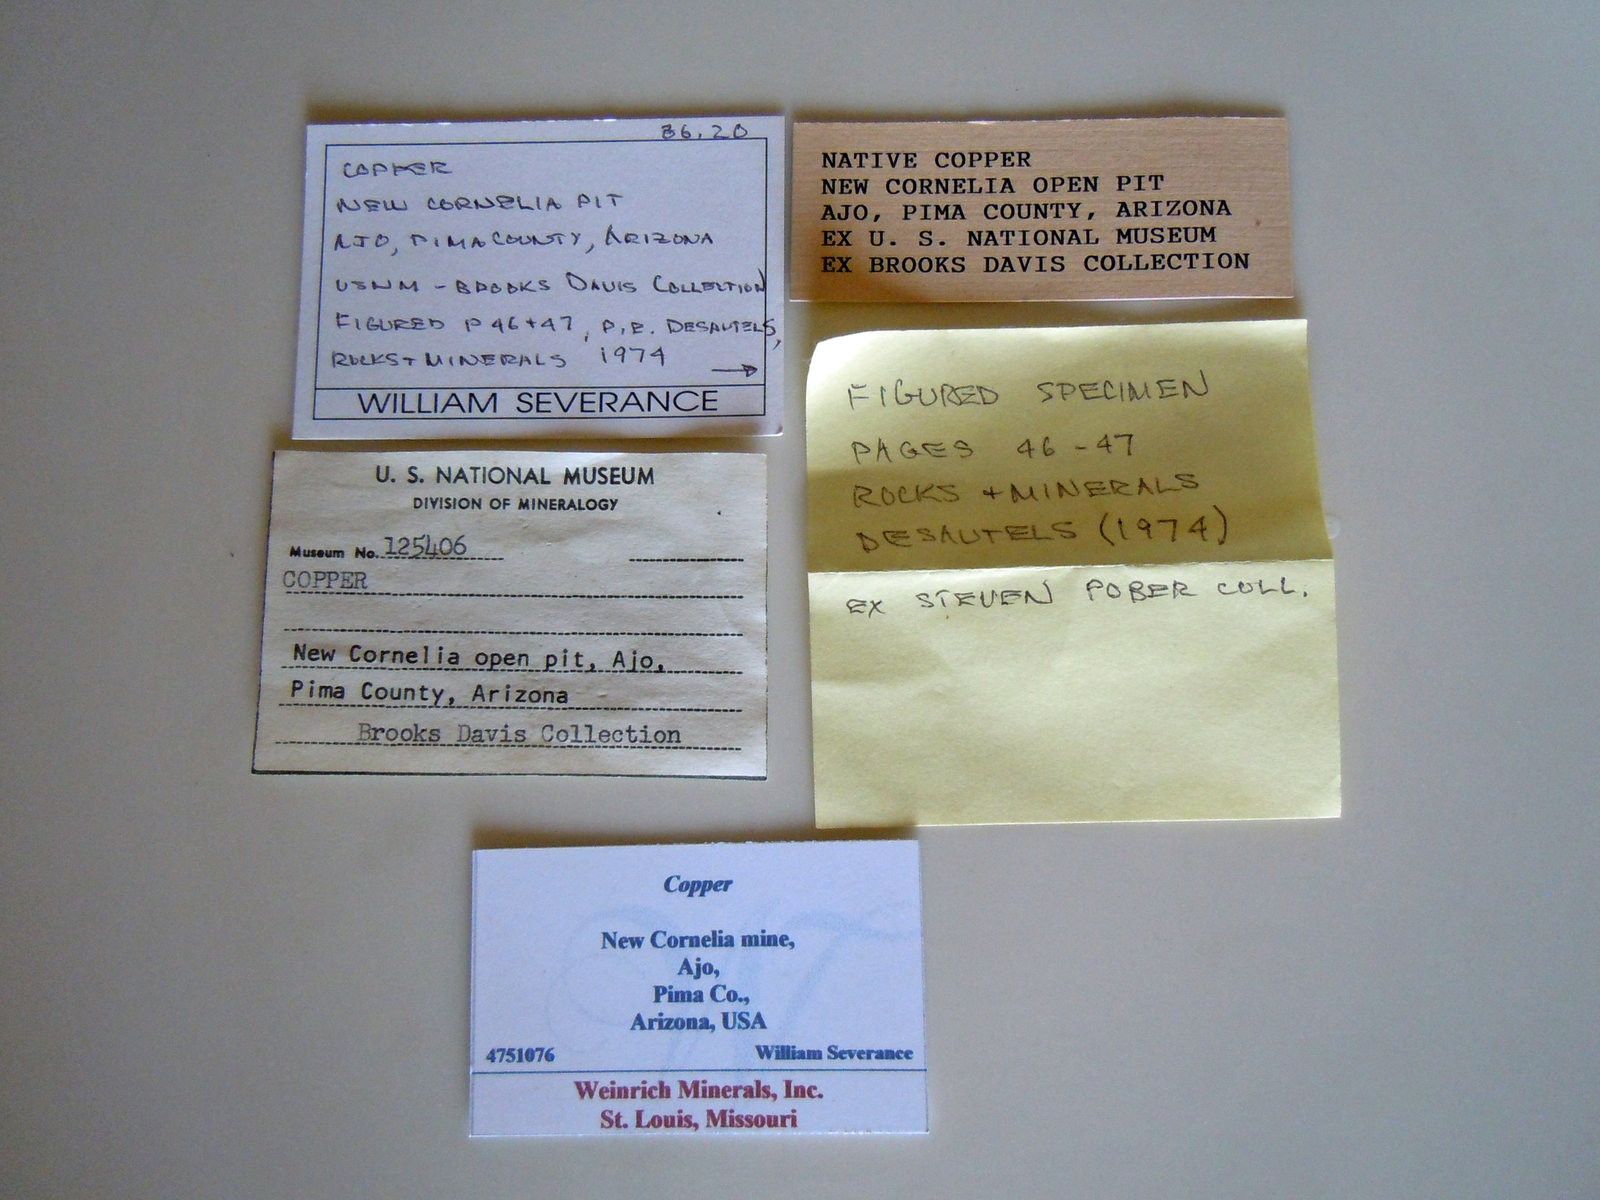 86.20
COPPER
NEW CORNELIA PIT
AJO, PIMA COUNTY, ARIZONA
USNM - BROOKS DAVIS COLLECTION
FIGURED P 46+47, P.E. DESAUTELS,
ROCKS + MINERALS 1974
→
WILLIAM SEVERANCE
NATIVE COPPER
NEW CORNELIA OPEN PIT
AJO, PIMA COUNTY, ARIZONA
EX U. S. NATIONAL MUSEUM
EX BROOKS DAVIS COLLECTION
U. S. NATIONAL MUSEUM
DIVISION OF MINERALOGY
Museum No. 125406
COPPER
New Cornelia open pit, Ajo,
Pima County, Arizona
Brooks Davis Collection
FIGURED SPECIMEN
PAGES 46-47
ROCKS + MINERALS
DESAUTELS (1974)
EX STEVEN POBER COLL.
Copper
New Cornelia mine,
Ajo,
Pima Co.,
Arizona, USA
4751076 William Severance
Weinrich Minerals, Inc.
St. Louis, Missouri